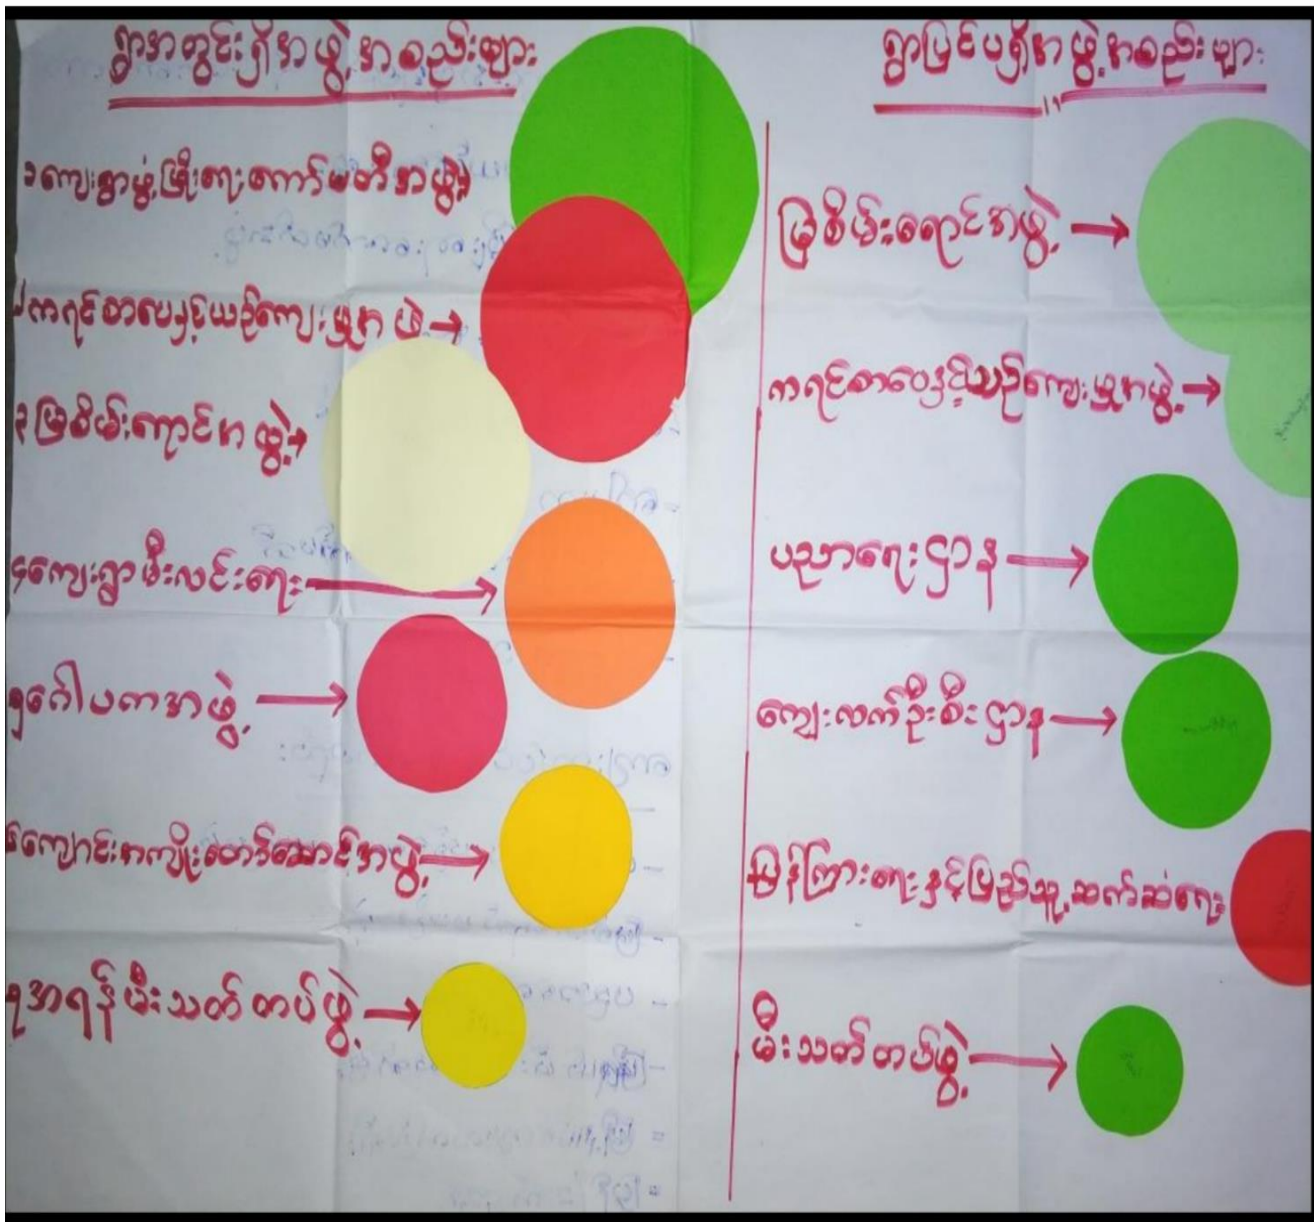 ရွာအတွင်းရှိအဖွဲ့အစည်းများ
၁ကျေးရွာဖွံ့ဖြိုးရေးကော်မတီအဖွဲ့
၂ကရင်စာပေနှင့်ယဉ်ကျေးမှုအဖွဲ့→
၃မြစိမ်းရောင်အဖွဲ့→
၄ကျေးရွာမီးလင်းရေး→
၅ဂေါပကအဖွဲ့→
၆ကျောင်းအကျိုးတော်ဆောင်အဖွဲ့→
၇အရန်မီးသတ်တပ်ဖွဲ့→
ရွာပြင်ပရှိအဖွဲ့အစည်းများ
မြစိမ်းရောင်အဖွဲ့→
ကရင်စာပေနှင့်ယဉ်ကျေးမှုအဖွဲ့→
ပညာရေးဌာန→
ကျေးလက်ဦးစီးဌာန→
ပြန်ကြားရေးနှင့်ပြည်သူ့ဆက်ဆံရေး
မီးသတ်တပ်ဖွဲ့→